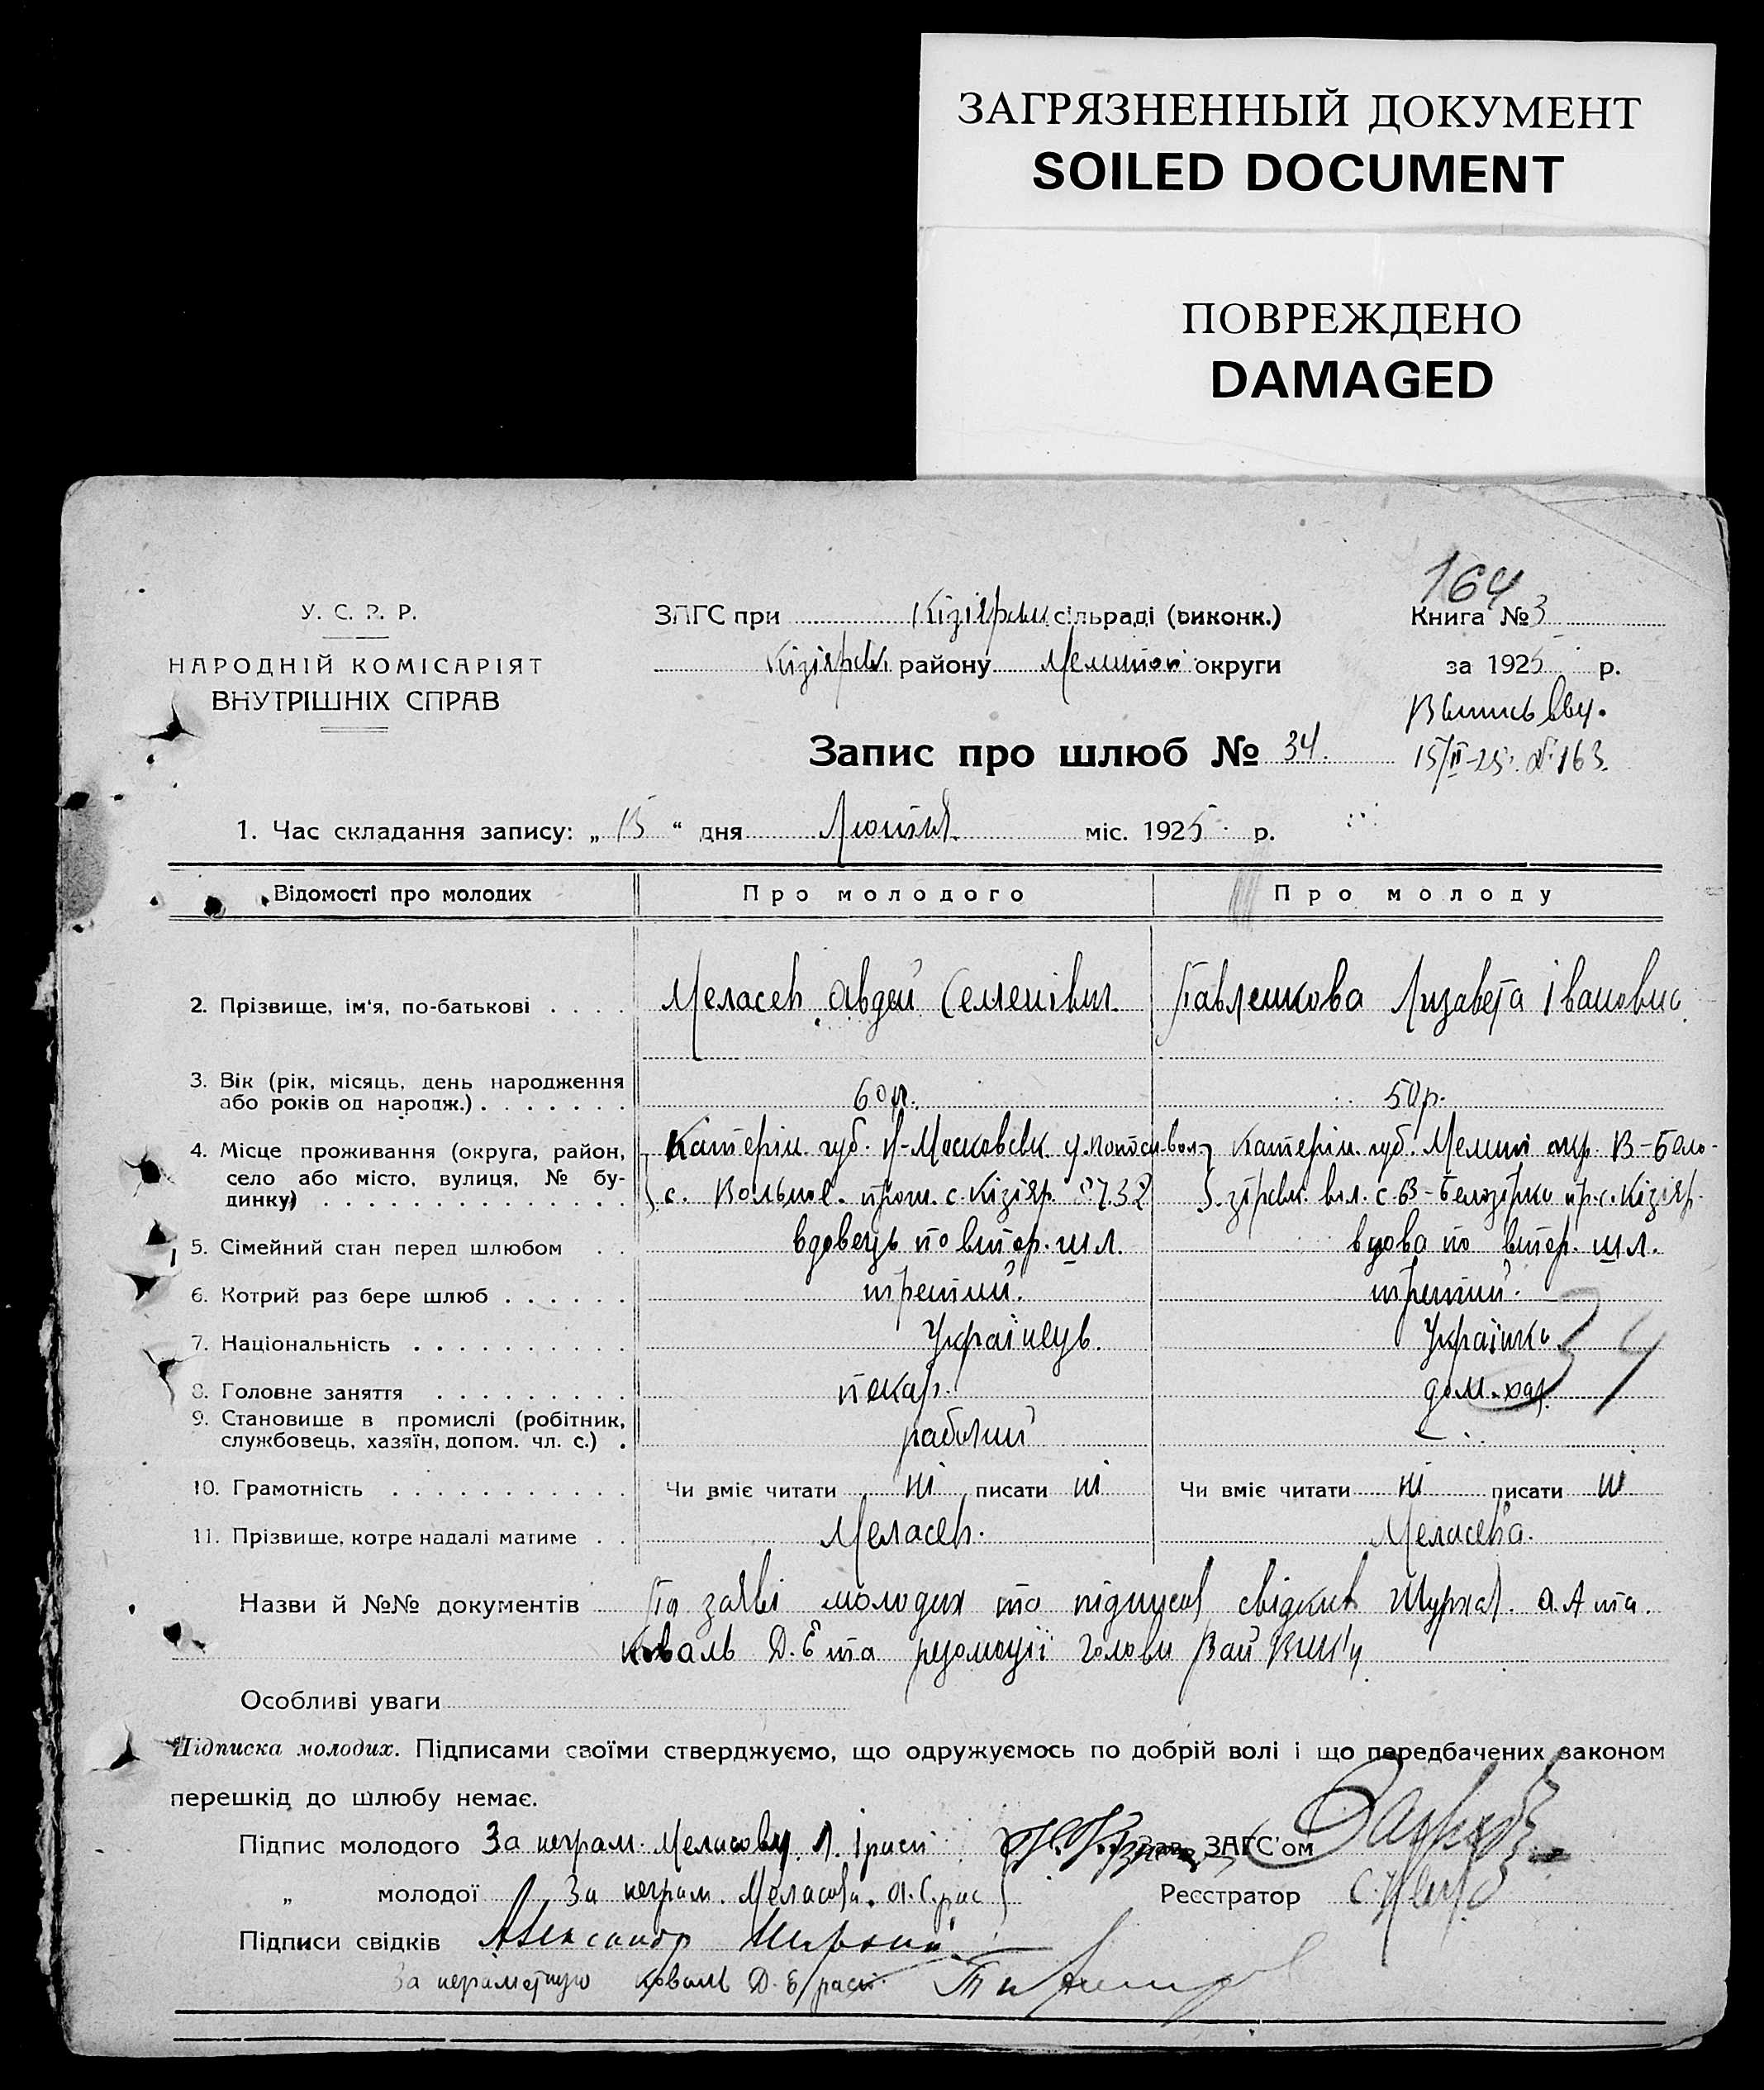 ЗАГРЯЗНЕННЫЙ ДОКУМЕНТ
SOILED DOCUMENT
ПОВРЕЖДЕНО
DAMAGED
164
У. С. Р. Р.
ЗАГС при Кізіярськ сільраді (виконк.)
Книга № 3
НАРОДНІЙ КОМІСАРІЯТ
Кізіярськ району Мелитоп округи
за 1925 р.
ВНУТРІШНІХ СПРАВ
Запис про шлюб № 34.
15/II-25. № 163.
1. Час складання запису: „ 15 “ дня Лютня міс. 1925 р.
Відомості про молодих
Про молодого
Про молоду
2. Прізвище, ім'я, по-батькові . . . .
Меласен Авдей Семенівич
Павленкова Лизавета Івановна
3. Вік (рік, місяць, день народження
або років од народж.) . . . . . . .
60 р.
50 р.
4. Місце проживання (округа, район,
село або місто, вулиця, № бу-
динку) . . . . . . . . . . . . . .
Катерін. губ. Н-Московськ у.
с. Вольное. прож. с. Кізіяр. № 732
Катерін. губ. Мелит окр. В-Бело-
зірськ. вол. с. В-Белозірка пр. с. Кізіяр.
5. Сімейний стан перед шлюбом . .
вдовець по втор. шл.
вдова по втор. шл.
6. Котрий раз бере шлюб . . . . . .
третий.
третий.
7. Національність . . . . . . . . . .
Українець.
Українка
34
8. Головне заняття . . . . . . . . .
пекар.
дом. хоз.
9. Становище в промислі (робітник,
службовець, хазяїн, допом. чл. с.) .
рабочий
10. Грамотність . . . . . . . . . . .
Чи вміє читати ні писати ні
Чи вміє читати ні писати ні
11. Прізвище, котре надалі матиме . .
Меласен.
Меласена.
Назви й №№ документів По заяві молодих та підписах свідків А. А та.
Коваль Д. Е та резолюції голови Рай Вик'у
Особливі уваги
Підписка молодих. Підписами своїми стверджуємо, що одружуємось по добрій волі і що передбачених законом
перешкід до шлюбу немає.
Підпис молодого За неграм.
Зав. ЗАГС'ом
„ молодої За неграм.
Реєстратор
Підписи свідків Александр
За неграмотную Коваль Д. Е расп.